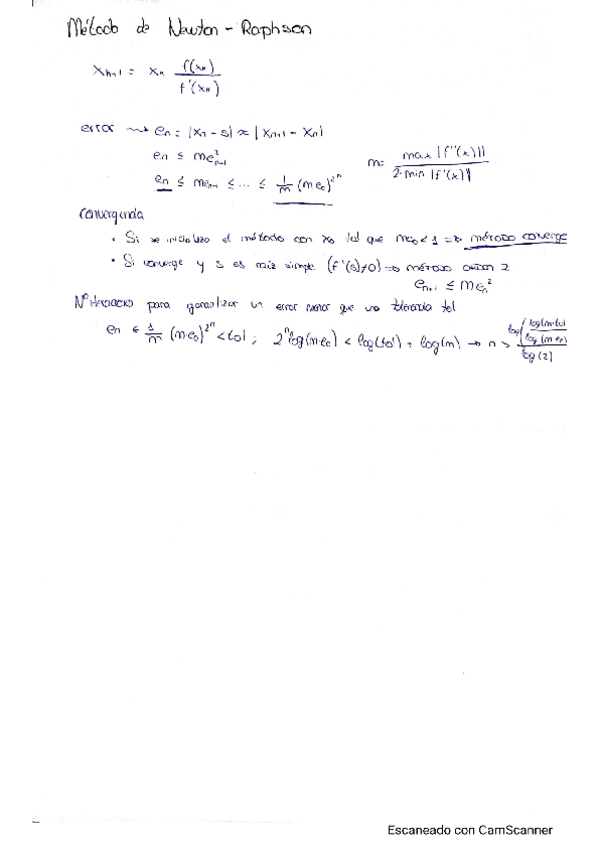 Método de Newton - Raphson
xn+1 = xn f(xn) / f'(xn)
error ⇝ en = |xn - s| ≈ |xn+1 - xn|
en ≤ m e²n-1
m = max |f''(x)| / 2·min |f'(x)|
en ≤ m en-1 ≤ ... ≤ 1/m (m e0)^2^n
Convergencia
· Si se inicializa el método con x0 tal que m e0 < 1 => método converge
· Si converge y s es raíz simple (f'(s)≠0) => método orden 2
en+1 ≤ M en²
Nº iteraciones para garantizar un error menor que una tolerancia tol
en ≤ 1/m (m·e0)^2^n < tol ; 2^n log(m·e0) < log(tol) + log(m) → n > log(log(m·tol) / log(m·e0)) / log(2)
Escaneado con CamScanner